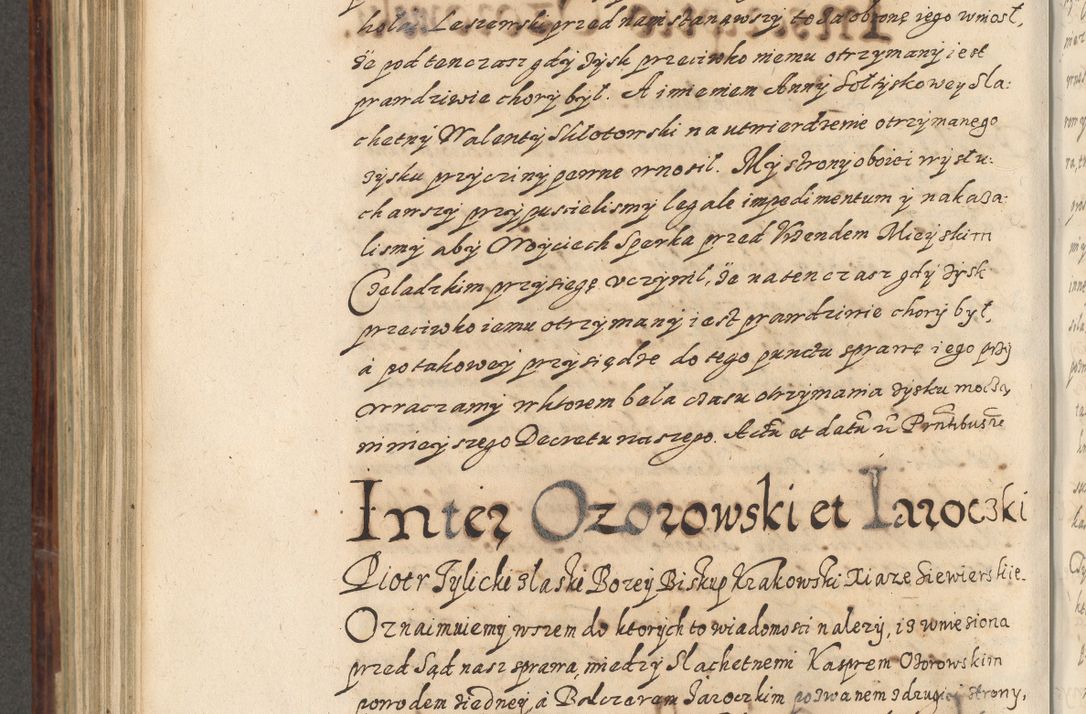 Leszewski przed nami stanąwszy to za obronę iego wniosł,
że pod ten czas gdy zysk przeciwko niemu otrzymany iest
prawdziwie chory był. A imieniem Anny Sołtyskowey Sla:
chetny Walenty Sklotowski na utwierdzenie otrzymanego
zysku przyczyny pewne wnosił. My strony oboiei wysłu:
chawszy przypuscielismy legale impedimentum y nakaza:
lismy aby Woyciech Sperka przed Vrzendem Mieyskim
Czeladzkim przysięgę vczynil, że na ten czas gdy zysk
przeciwko iemu otrzymany iest prawdziwie chory był,
a po takowey przysiędze do tego punctu sprawę iego przy
wracamy w ktorem była czasu otrzymania zysku moczą
ninieyszego Decretu naszego. Actū et datū ut Prntibus
Inter Ozorowski et Jaroczki
Piotr Tylicki z laski Bozey Biskup Krakowski Xiaze Siewierskie.
Oznaimuiemy wszem do ktorych to wiadomosci nalezy, iz wniesiona
przed Sąd nasz sprawa, miedzy Slachetnemi Kasprem Ozorowskim
powodem z iedney, a Balczerem Jaroczkim pozwanem z drugiej strony,